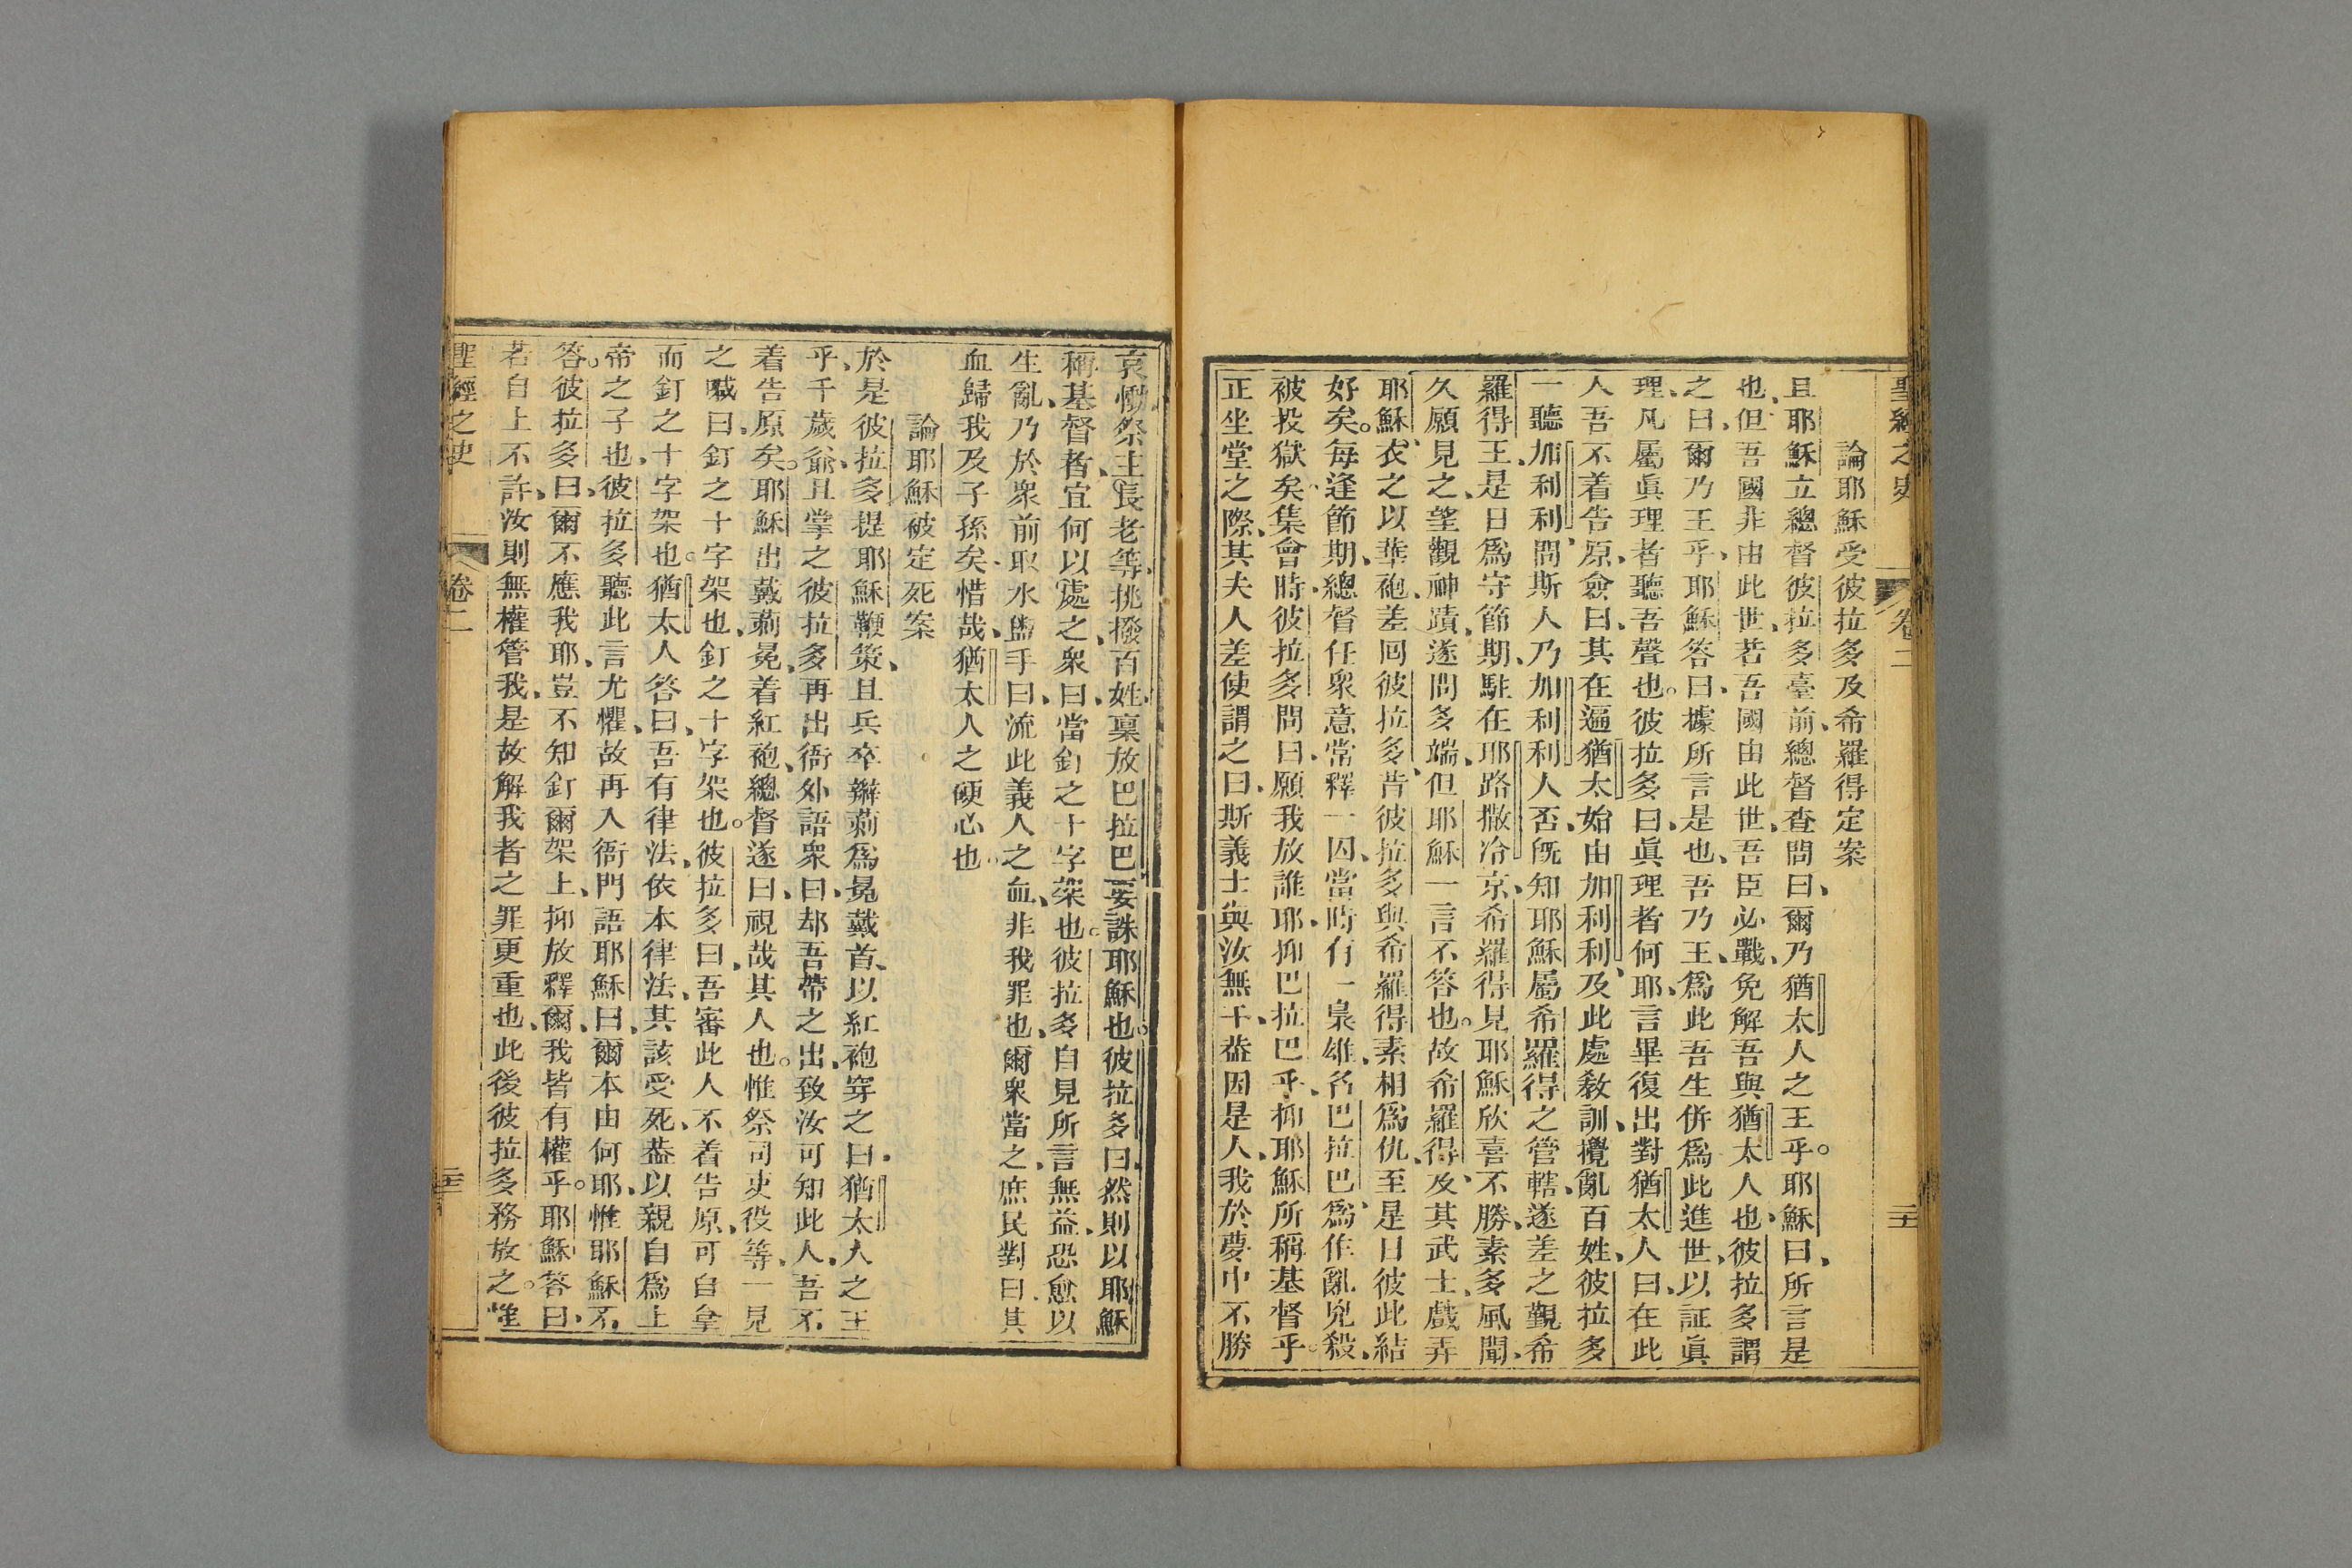 聖經之史 卷二
論耶穌受彼拉多及希羅得定案
且耶穌立總督彼拉多臺前、總督查問曰、爾乃猶太人之王乎。耶穌曰、所言是
也、但吾國非由此世、若吾國由此世、吾臣必戰、免解吾與猶太人也、彼拉多謂
之曰、爾乃王乎、耶穌答曰、據所言是也、吾乃王、爲此吾生併爲此進世、以証眞
理、凡屬眞理者聽吾聲也。彼拉多曰、眞理者何耶、言畢復出對猶太人曰、在此
人吾不着告原、僉曰、其在逼猶太、始由加利利、及此處敎訓、攪亂百姓、彼拉多
一聽加利利、問斯人乃加利利人否、旣知耶穌屬希羅得之管轄、遂差之覲希
羅得王、是日爲守節期、駐在耶路撒冷京、希羅得見耶穌欣喜不勝、素多風聞、
久願見之、望觀神蹟、遂問多端、但耶穌一言不答也。故希羅得、及其武士、戲弄
耶穌、衣之以華袍、差回彼拉多、昔彼拉多與希羅得素相爲仇、至是日彼此結
好矣。每逢節期、總督任衆意常釋一囚、當時有一梟雄、名巴拉巴、爲作亂兇殺、
被投獄矣、集會時、彼拉多問曰、願我放誰耶、抑巴拉巴乎、抑耶穌所稱基督乎。
正坐堂之際、其夫人差使謂之曰、斯義士與汝無干、葢因是人、我於夢中不勝
哀慟、祭主長老等、挑撥百姓、稟放巴拉巴、要誅耶穌也。彼拉多曰、然則以耶穌
稱基督者、宜何以處之、衆曰、當釘之十字架也。彼拉多自見所言無益、恐愈以
生亂、乃於衆前取水盥手曰、流此義人之血、非我罪也、爾衆當之、庶民對曰、其
血歸我及子孫矣、惜哉、猶太人之硬心也。
論耶穌被定死案
於是彼拉多提耶穌鞭策、且兵卒辮莿爲冕戴首、以紅袍穿之曰、猶太人之王
乎、千歲爺、且掌之、彼拉多再出衙外語衆曰、却吾帶之出、致汝可知此人、吾不
着告原矣。耶穌出戴莿冕、着紅袍、總督遂曰、視哉其人也。惟祭司吏役等、一見
之喊曰、釘之十字架也、釘之十字架也。彼拉多曰、吾審此人不着告原、可自拿
而釘之十字架也。猶太人答曰、吾有律法、依本律法、其該受死、葢以親自爲上
帝之子也、彼拉多聽此言尤懼、故再入衙門語耶穌曰、爾本由何耶、惟耶穌不
答。彼拉多曰、爾不應我耶、豈不知釘爾架上、抑放釋爾、我皆有權乎。耶穌答曰、
若自上不許、汝則無權管我、是故解我者之罪更重也、此後彼拉多務放之。惟
聖經之史 卷二